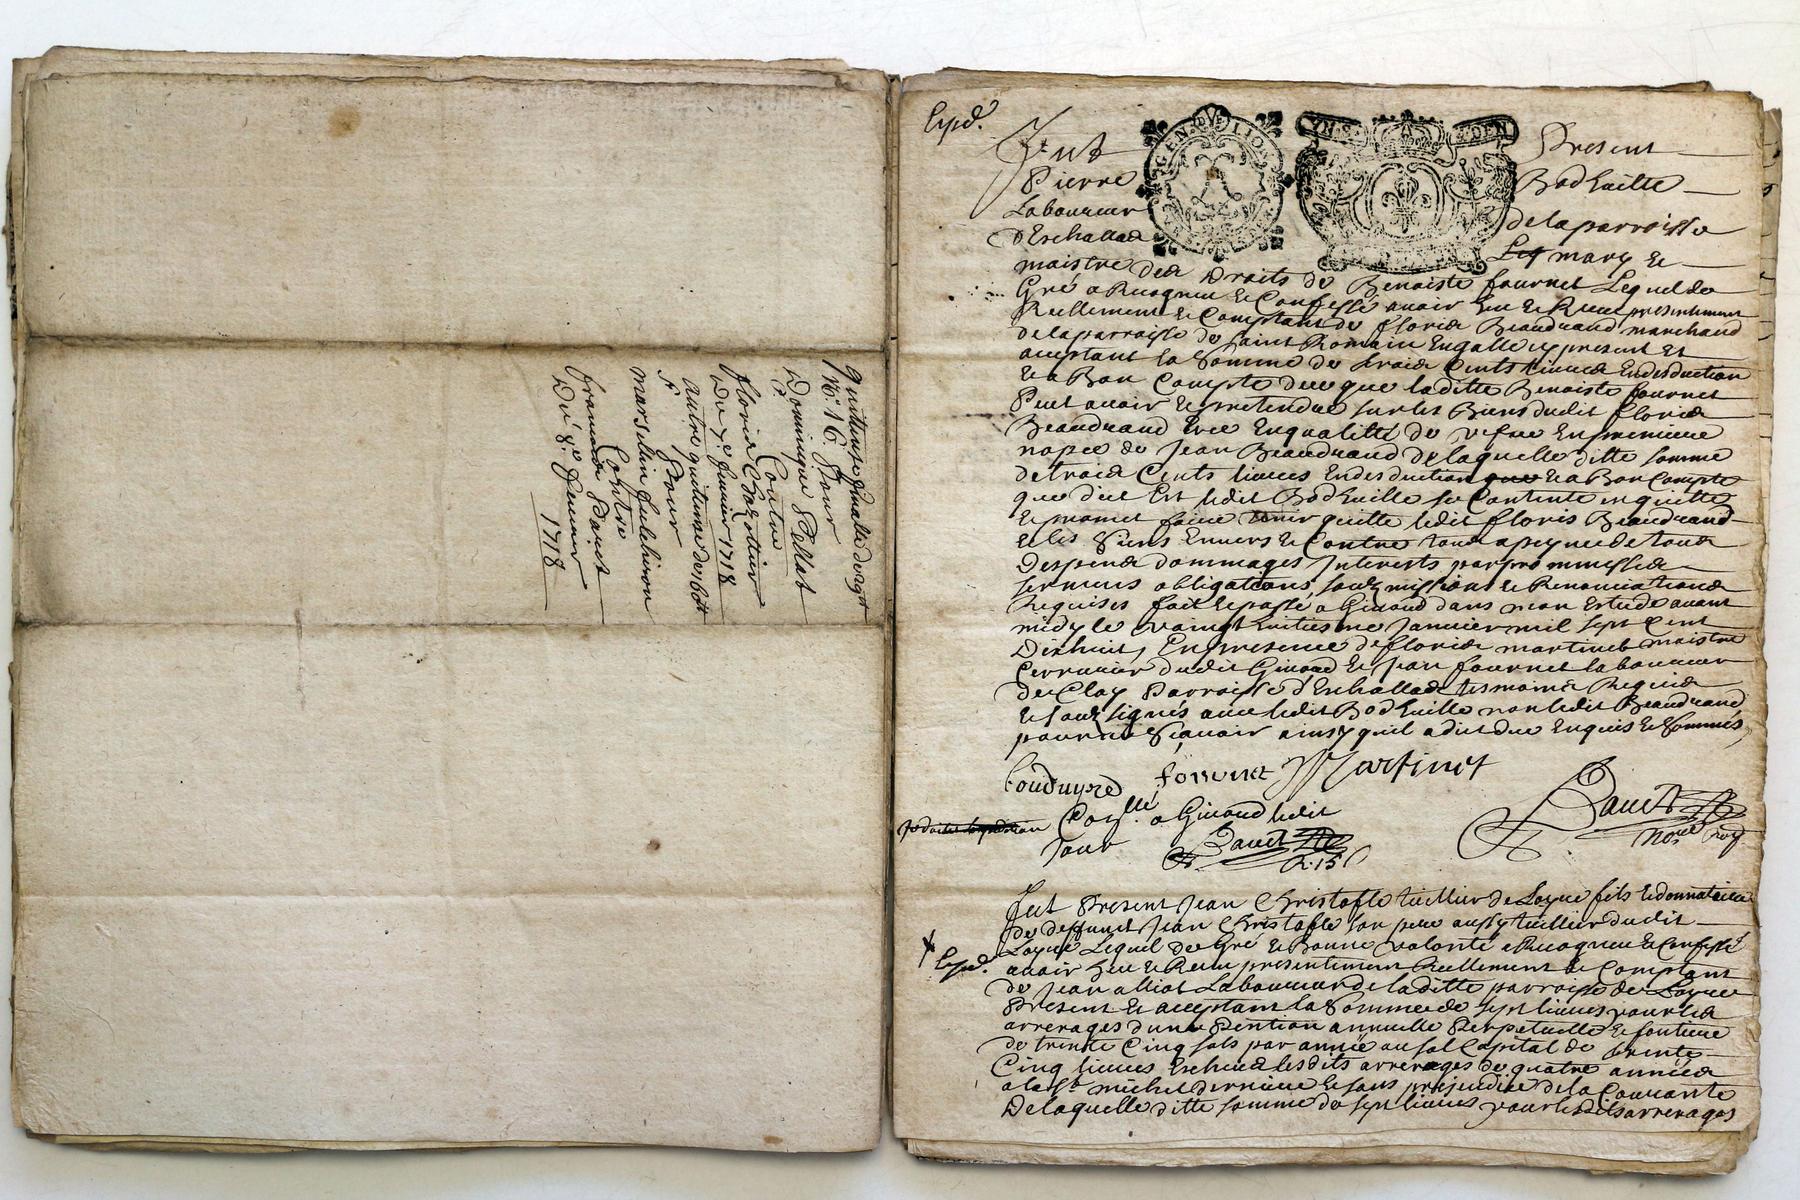 quittance finalle de
pour
Dominique Pellat
Contre
floris Chazottier
Du 7e. Janvier 1718
autre quittance de
Pour
marselin
Contre
francois
Du 8e. Janvier
1718
Exped.
GEN. DVE LION
VN S. 4 DEN
Fut Present
Pierre Bodhuille
Laboureur de la parroisse
d'Eschallas Leq mary &
maistre des Droits de Benoiste fournet Lequel de
Gré a Recogneu & Confessé avoir heu & Receu presentement
Reellement & Comptant de floris Beaudrand marchand
de la parroisse de saint Romain Engalle cy present et
aceptant la Somme de trois Cents livres En desduction
& a Bon Compte de ce que laditte Benoiste fournet
Peut avoir & pretendre sur les Biens dudit floris
Beaudrand Ere En qualitté de vefve En premieres
nopces de Jean Beaudrand de laquelle ditte somme
de trois Cents livres En desduction que & a Bon Compte
que dict Est ledit Bodhuille se Contente en quitte
& promet faire tenir quitte ledit floris Beaudrand
& les Siens Envers & Contre tous a peyne de tous
Despens dommages Interests par pro messes
sermens obligations, soubzmissions & Renonciations
Requises fait & passé a Givord dans mon Estude avant
midy le vaingt huitiesme Janvier mil sept Cent
Dixhuit, En presence de floris martinet maistre
serrurier dudit Givord & Jean fournet laboureur
de Clay Parroisse d'Eschallas tesmoins Requis
& soubzsignés avec ledit Bodhuille non ledit Beaudrand
pour ne Sçavoir ainsy quil a dit de ce Enquis & Sommés
fournet Martinet
Conlle. a Givord ledit
Jour
R. 15 s
Fut Present Jean Christofle tuillier de Loyre fils & donnataire
de deffunct Jean Christofle son pere aussy tuillier dudit
Loyre Lequel de Gré & Bonne volonté a Recogneu & Confessé
Exped.
avoir heu & Receu presentement Reellement & Comptant
de Jean alliot Laboureur de laditte parroisse de Loyre
Present & aceptant la Somme de sept livres pour les
arrerages d'une Pention annuelle Perpetuelle & fonciere
de trente Cinq sols par année au sol Capital de trente
Cinq livres Escheus lesdits arrerages de quatre années
a la St michel derniere & sans prejudice de la Courante
De laquelle ditte somme de sept livres pour lesdits arrerages